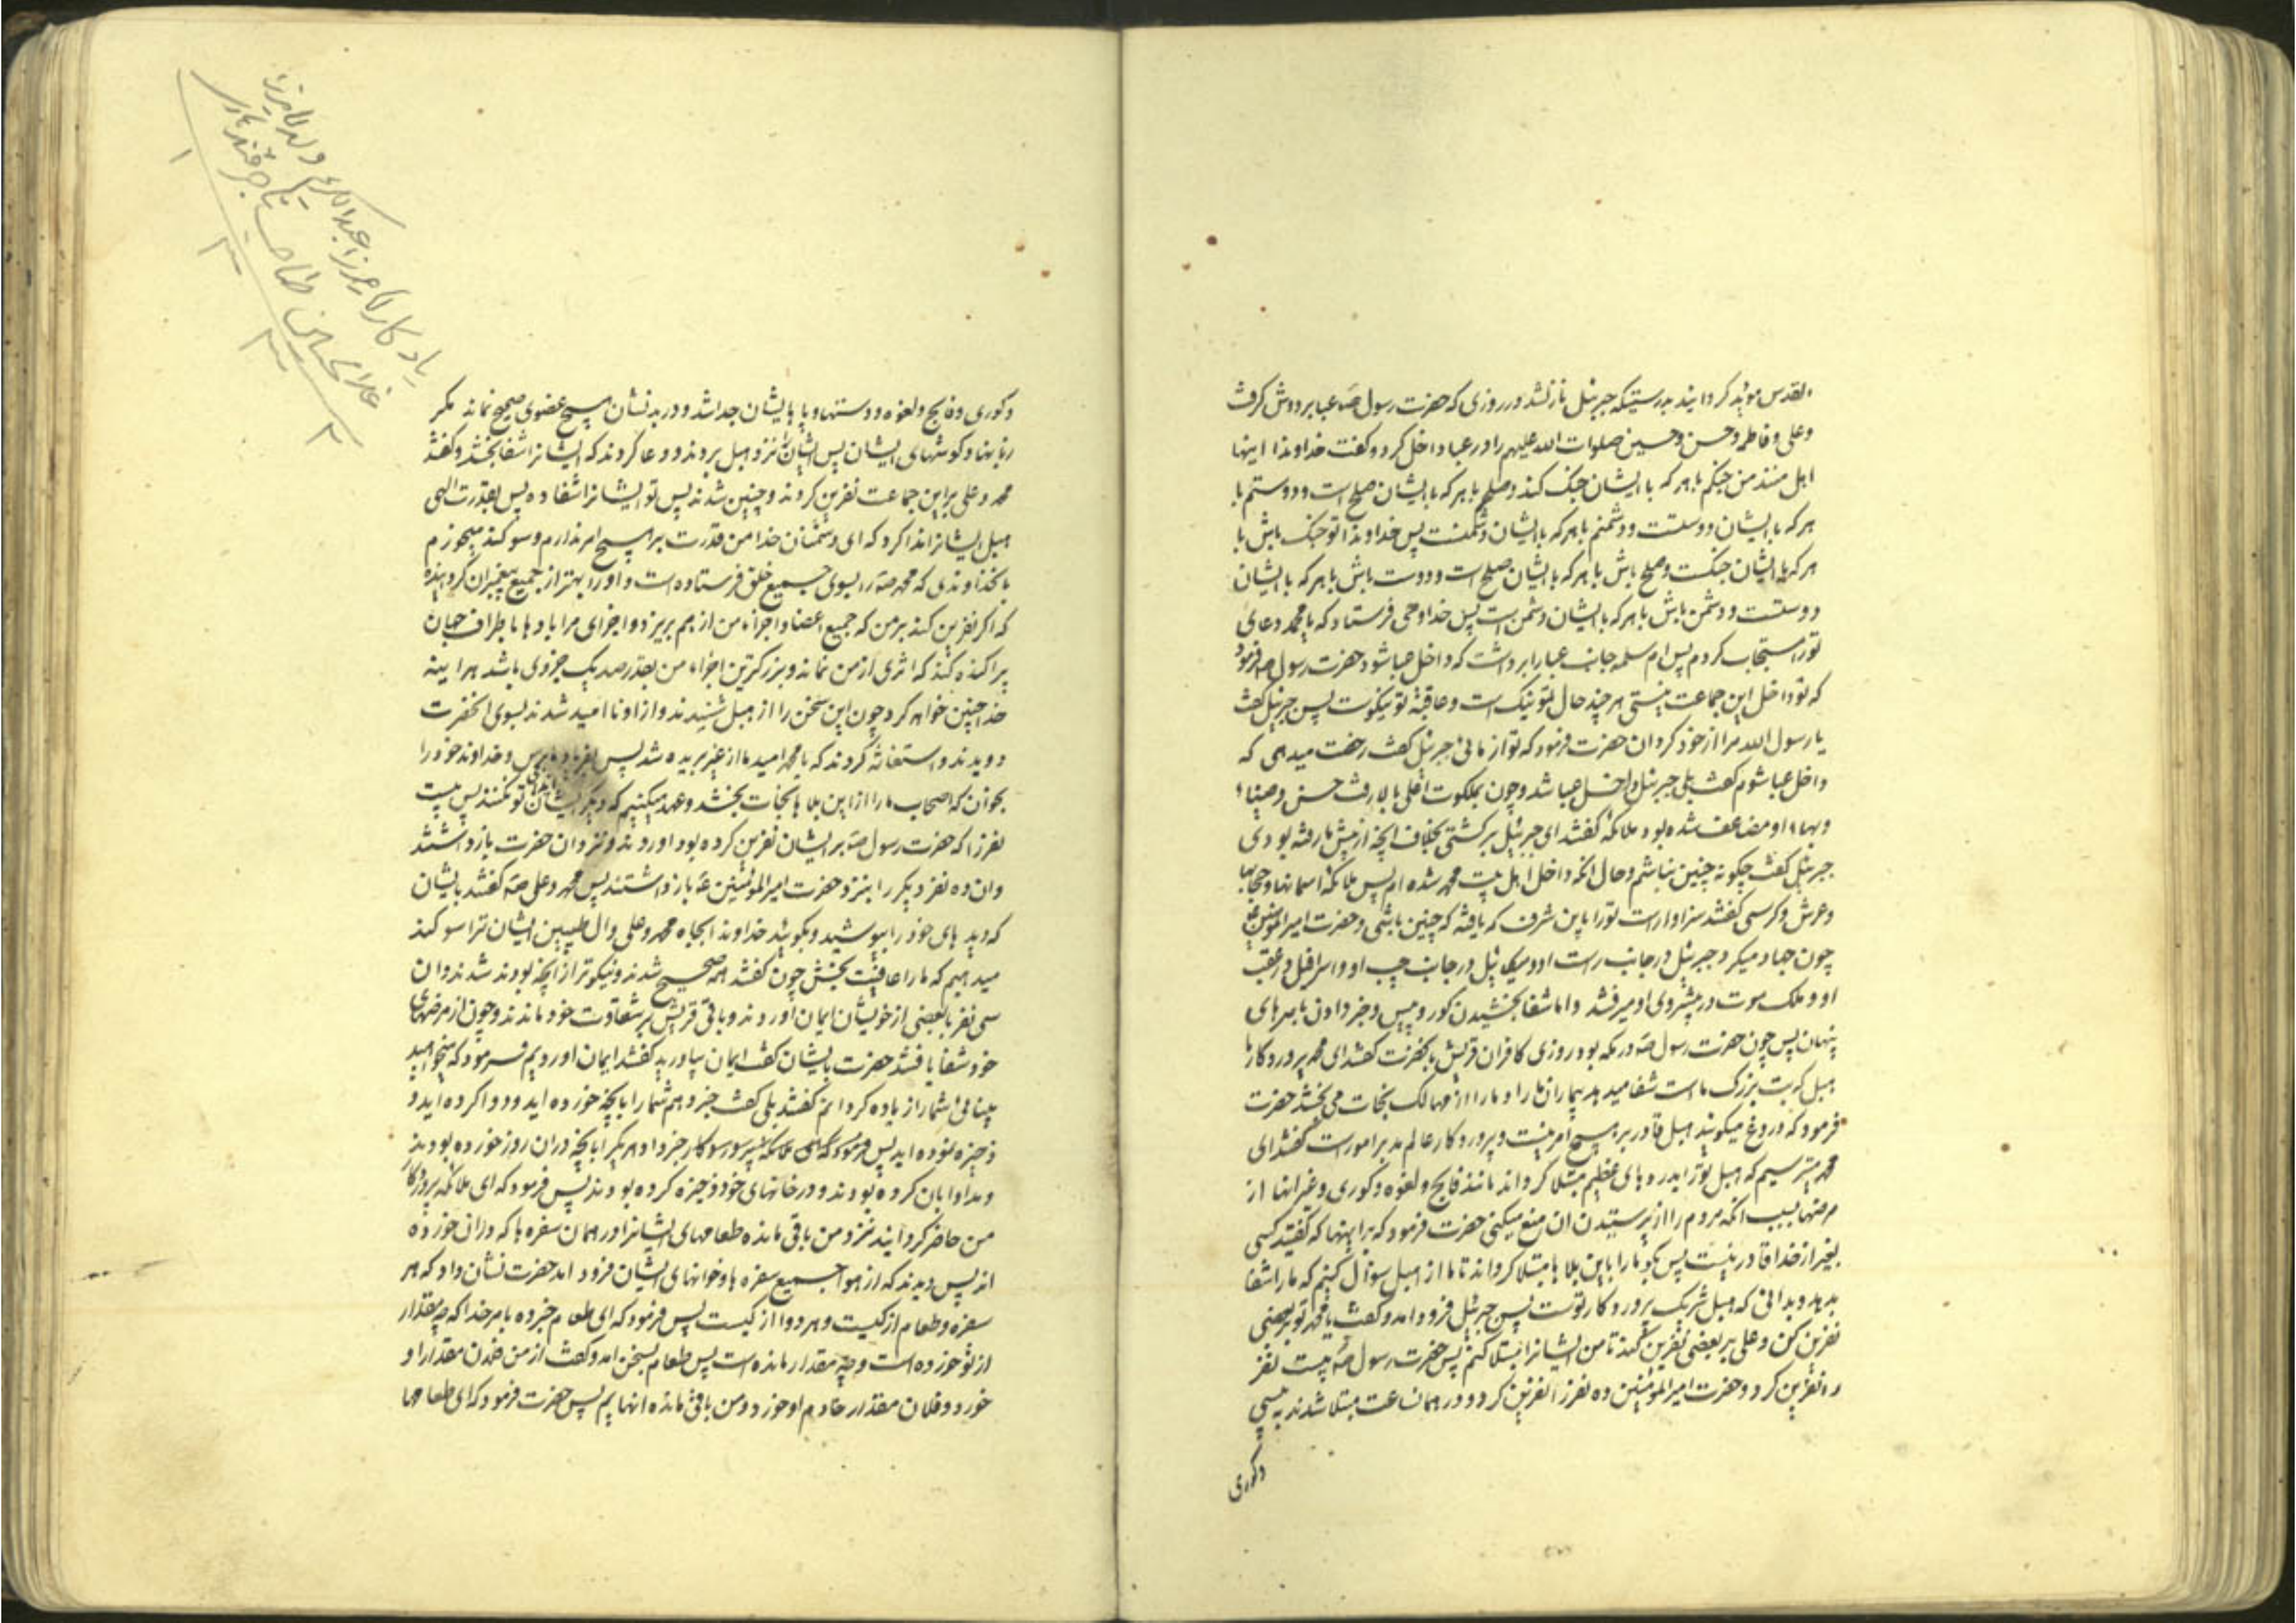 القدس مؤید کردانید بدرستیکه جبرئیل نازلشد در روزی که حضرت رسول صه عبا بر دوش کرفت
وعلی وفاطمه وحسن وحسین صلوات الله علیهم را در عبا داخل کرد وکفت خداوندا اینها
اهل منند من جنکم با هر که با ایشان جنک کند وصلحم با هر که با ایشان صلح است ودوستم با
هر که با ایشان دوستست ودشمنم با هر که با ایشان دشمنست پس خداوندا تو جنک باش با
هر که با ایشان جنکست وصلح باش با هر که با ایشان صلح است ودوست باش با هر که با ایشان
دوستست ودشمن باش با هر که با ایشان دشمن است پس خدا وحی فرستاد که یا محمد دعای
تورا مستجاب کردم پس ام سلمه جانب عبا را برداشت که داخل عبا شود حضرت رسول صه فرمود
که تو داخل این جماعت نیستی هر چند حال تو نیک است وعاقبة تو نیکوست پس جبرئیل کفت
یا رسول الله مرا از خود کردان حضرت فرمود که تو از مائی جبرئیل کفت رخصت میدهی که
داخل عبا شوم کفت بلی جبرئیل داخل عبا شد وچون بملکوت اعلی بالا رفت حسن وضیاء
وبهاء او مضاعف شده بود ملائکه کفتند ای جبرئیل برکشتی بخلاف انچه از پیش ما رفته بودی
جبرئیل کفت چکونه چنین نباشم وحال انکه داخل اهل بیت محمد شده ام پس ملائکه اسمانها وحجابها
وعرش وکرسی کفتند سزاوار است تورا باین شرف که یافته که چنین باشی وحضرت امیر المؤمنین ع
چون جهاد میکرد جبرئیل در جانب راست او ومیکائیل در جانب چپ او واسرافیل در عقب
او وملک موت در پیشروی او میرفتند واما شفا بخشیدن کور وپیس وخبر دادن بامرهای
پنهان پس چون حضرت رسول صه در مکه بود روزی کافران قریش بانحضرت کفتند ای محمد پروردکار ما
هبل که بت بزرک ما است شفا میدهد بیماران ما را وما را از مهالک نجات می بخشد حضرت
فرمود که دروغ میکویید هبل قادر بر هیچ امر نیست وپروردکار عالم مدبر امور است کفتند ای
محمد میترسیم که هبل تورا بدردهای عظیم مبتلا کرداند مانند فالج ولقوه وکوری وغیر انها از
مرضها بسبب انکه مردم را از پرستیدن ان منع میکنی حضرت فرمود که بر اینها که کفتید کسی
بغیر از خدا قادر نیست پس بکو ما را باین بلاها مبتلا کرداند تا ما از هبل سؤال کنیم که ما را شفا
بدهد وبدانی که هبل شریک پروردکار توست پس جبرئیل فرود امد وکفت یا محمد تو بر بعضی
نفرین کن وعلی بر بعضی نفرین کند تا من ایشانرا مبتلا کنم پس حضرت رسول صه بیست نفر
را نفرین کرد وحضرت امیر المؤمنین ده نفر را نفرین کرد ودر همان ساعت مبتلا شدند به پیسی
وکوری
وکوری وفالج ولقوه ودستها وپاهایشان جدا شد ودر بدنشان هیچ عضوی صحیح نماند مکر
زبانها وکوشهای ایشان پس ایشان را نزد هبل بردند ودعا کردند که ایشانرا شفا بخشد وکفتند
محمد وعلی بر این جماعت نفرین کردند وچنین شدند پس تو ایشانرا شفا ده پس بقدرت الهی
هبل ایشانرا ندا کرد که ای دشمنان خدا من قدرت بر هیچ امر ندارم وسوکند میخورم
بخداوندی که محمد صه را بسوی جمیع خلق فرستاده است واو را بهتر از جمیع پیغمبران کردانیده
که اکر نفرین کند بر من که جمیع اعضا واجزاء من از هم بریزد واجزای مرا بادها باطراف جهان
پراکنده کند که اثری از من نماند وبزرکترین اجزاء من بقدر صد یک خردلی باشد هر اینه
خدا چنین خواهد کرد چون این سخن را از هبل شنیدند واز او ناامید شدند بسوی انحضرت
دویدند واستغاثه کردند که یا محمد امید ما از غیر بریده شد پس بفریاد ما برس وخداوند خود را
بخوان که اصحاب ما را از این بلاها نجات بخشد وعهد میکنیم که دیکر ایشان ایذای تو نکنند پس بیست
نفر را که حضرت رسول صه بر ایشان نفرین کرده بود اوردند ونزد ان حضرت باز داشتند
وان ده نفر دیکر را بنزد حضرت امیر المؤمنین عه باز داشتند پس محمد وعلی صه کفتند بایشان
که دیدهای خود را بپوشید وبکویید خداوندا بجاه محمد وعلی وال طیبین ایشان ترا سوکند
میدهیم که ما را عافیت بخش چون کفتند همه صحیح شدند ونیکوتر از انچه بودند شدند وان
سی نفر با بعضی از خویشان ایمان اوردند وباقی قریش بر شقاوت خود ماندند وچون از مرضهای
خود شفا یافتند حضرت بایشان کفت ایمان بیاورید کفتند ایمان اوردیم فرمود که میخواهید
بینائی شما را زیاده کردانم کفتند بلی کفت خبر دهم شما را بانچه خورده اید ودوا کرده اید و
ذخیره نموده اید پس هر یک را بانچه در ان روز خورده بودند
ومداوا بان کرده بودند ودر خانهای خود ذخیره کرده بودند پس فرمود که ای ملائکه پروردکار
من حاضر کردانید نزد من باقی مانده طعامهای ایشانرا در همان سفره ها که در ان خورده
اند پس دیدند که از هوا جمیع سفره ها وخوانهای ایشان فرود امد حضرت نشان داد که هر
سفره وطعام از کیست وهر دوا از کیست پس فرمود که ای طعام خبر ده بامر خدا که چه مقدار
از تو خورده است وچه مقدار مانده است پس طعام بسخن امد وکفت از من فلان مقدار او
خورد وفلان مقدار خادم او خورد ومن باقی مانده انهایم پس حضرت فرمود که ای طعامها
یادکار میرزا عبدالکریم ولد